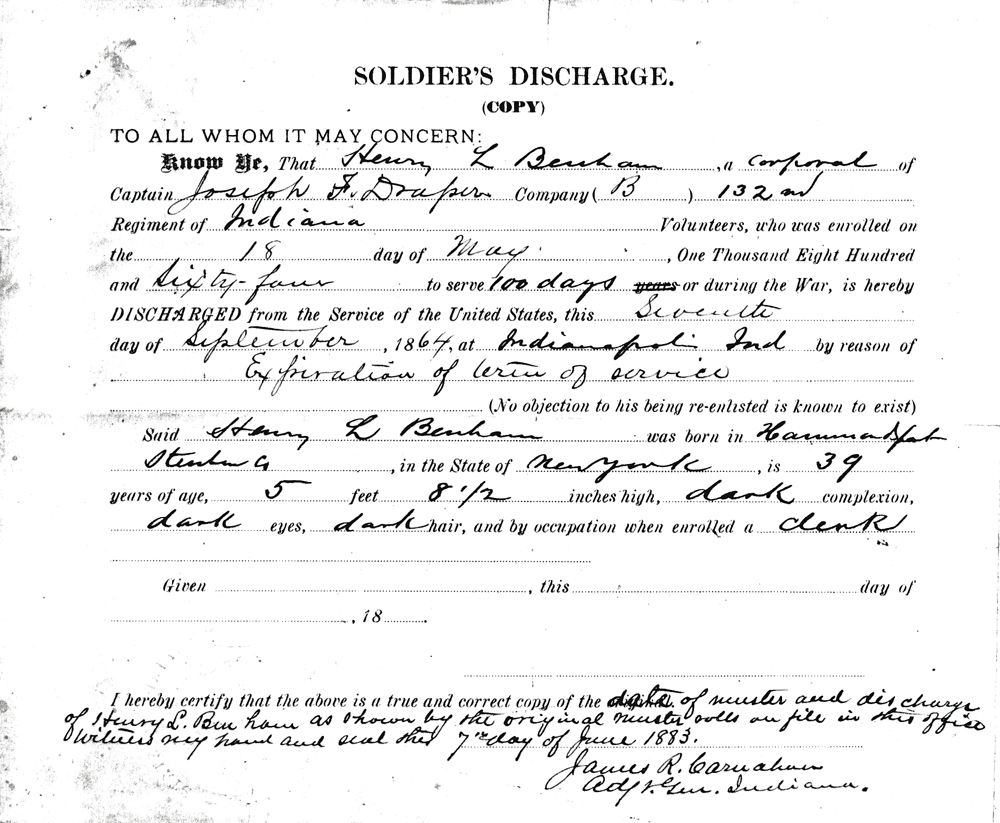 SOLDIER'S DISCHARGE.
(COPY)
TO ALL WHOM IT MAY CONCERN:
Know Ye, That Henry L Benham, a corporal of
Captain Joseph F. Draper Company (B) 132nd
Regiment of Indiana Volunteers, who was enrolled on
the 18 day of May, One Thousand Eight Hundred
and Sixty-four to serve 100 days years or during the War, is hereby
DISCHARGED from the Service of the United States, this Seventh
day of September, 1864, at Indianapolis Ind by reason of
Expiration of term of service
(No objection to his being re-enlisted is known to exist)
Said Henry L Benham was born in Hammondsport
Steuben Co, in the State of New York, is 39
years of age, 5 feet 8 1/2 inches high, dark complexion,
dark eyes, dark hair, and by occupation when enrolled a clerk
Given, this day of
, 18 .
I hereby certify that the above is a true and correct copy of the date of muster and discharge
of Henry L. Benham as shown by the original muster rolls on file in this office
Witness my hand and seal this 7th day of June 1883.
James R. Carnahan
Adjt. Gen. Indiana.